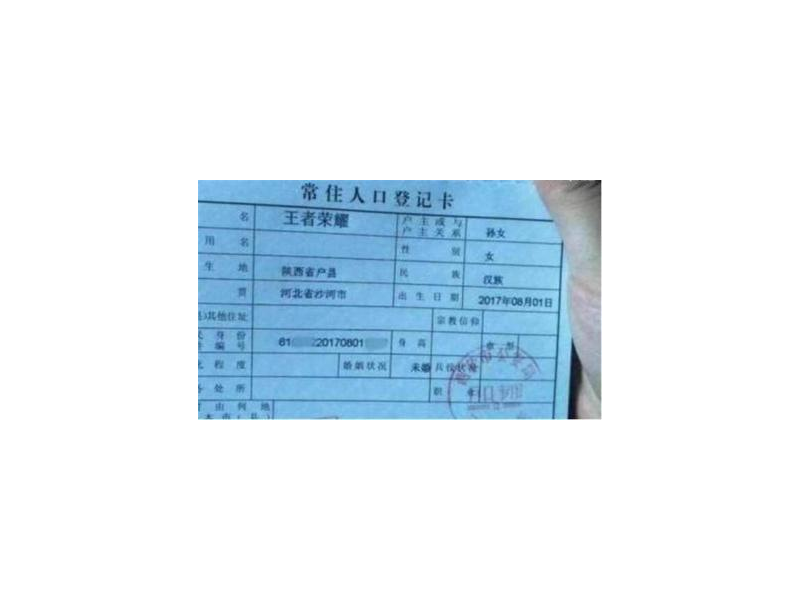 常住人口登记卡
名 王者荣耀 户主或与户主关系 孙女
用名 性别 女
生地 陕西省户县 民族 汉族
贯 河北省沙河市 出生日期 2017年08月01日
其他住址 宗教信仰
身份 编号 81 20170801 身高 血型
程度 婚姻状况 未婚 兵役状况
处所 职业
由何地
本市(县)